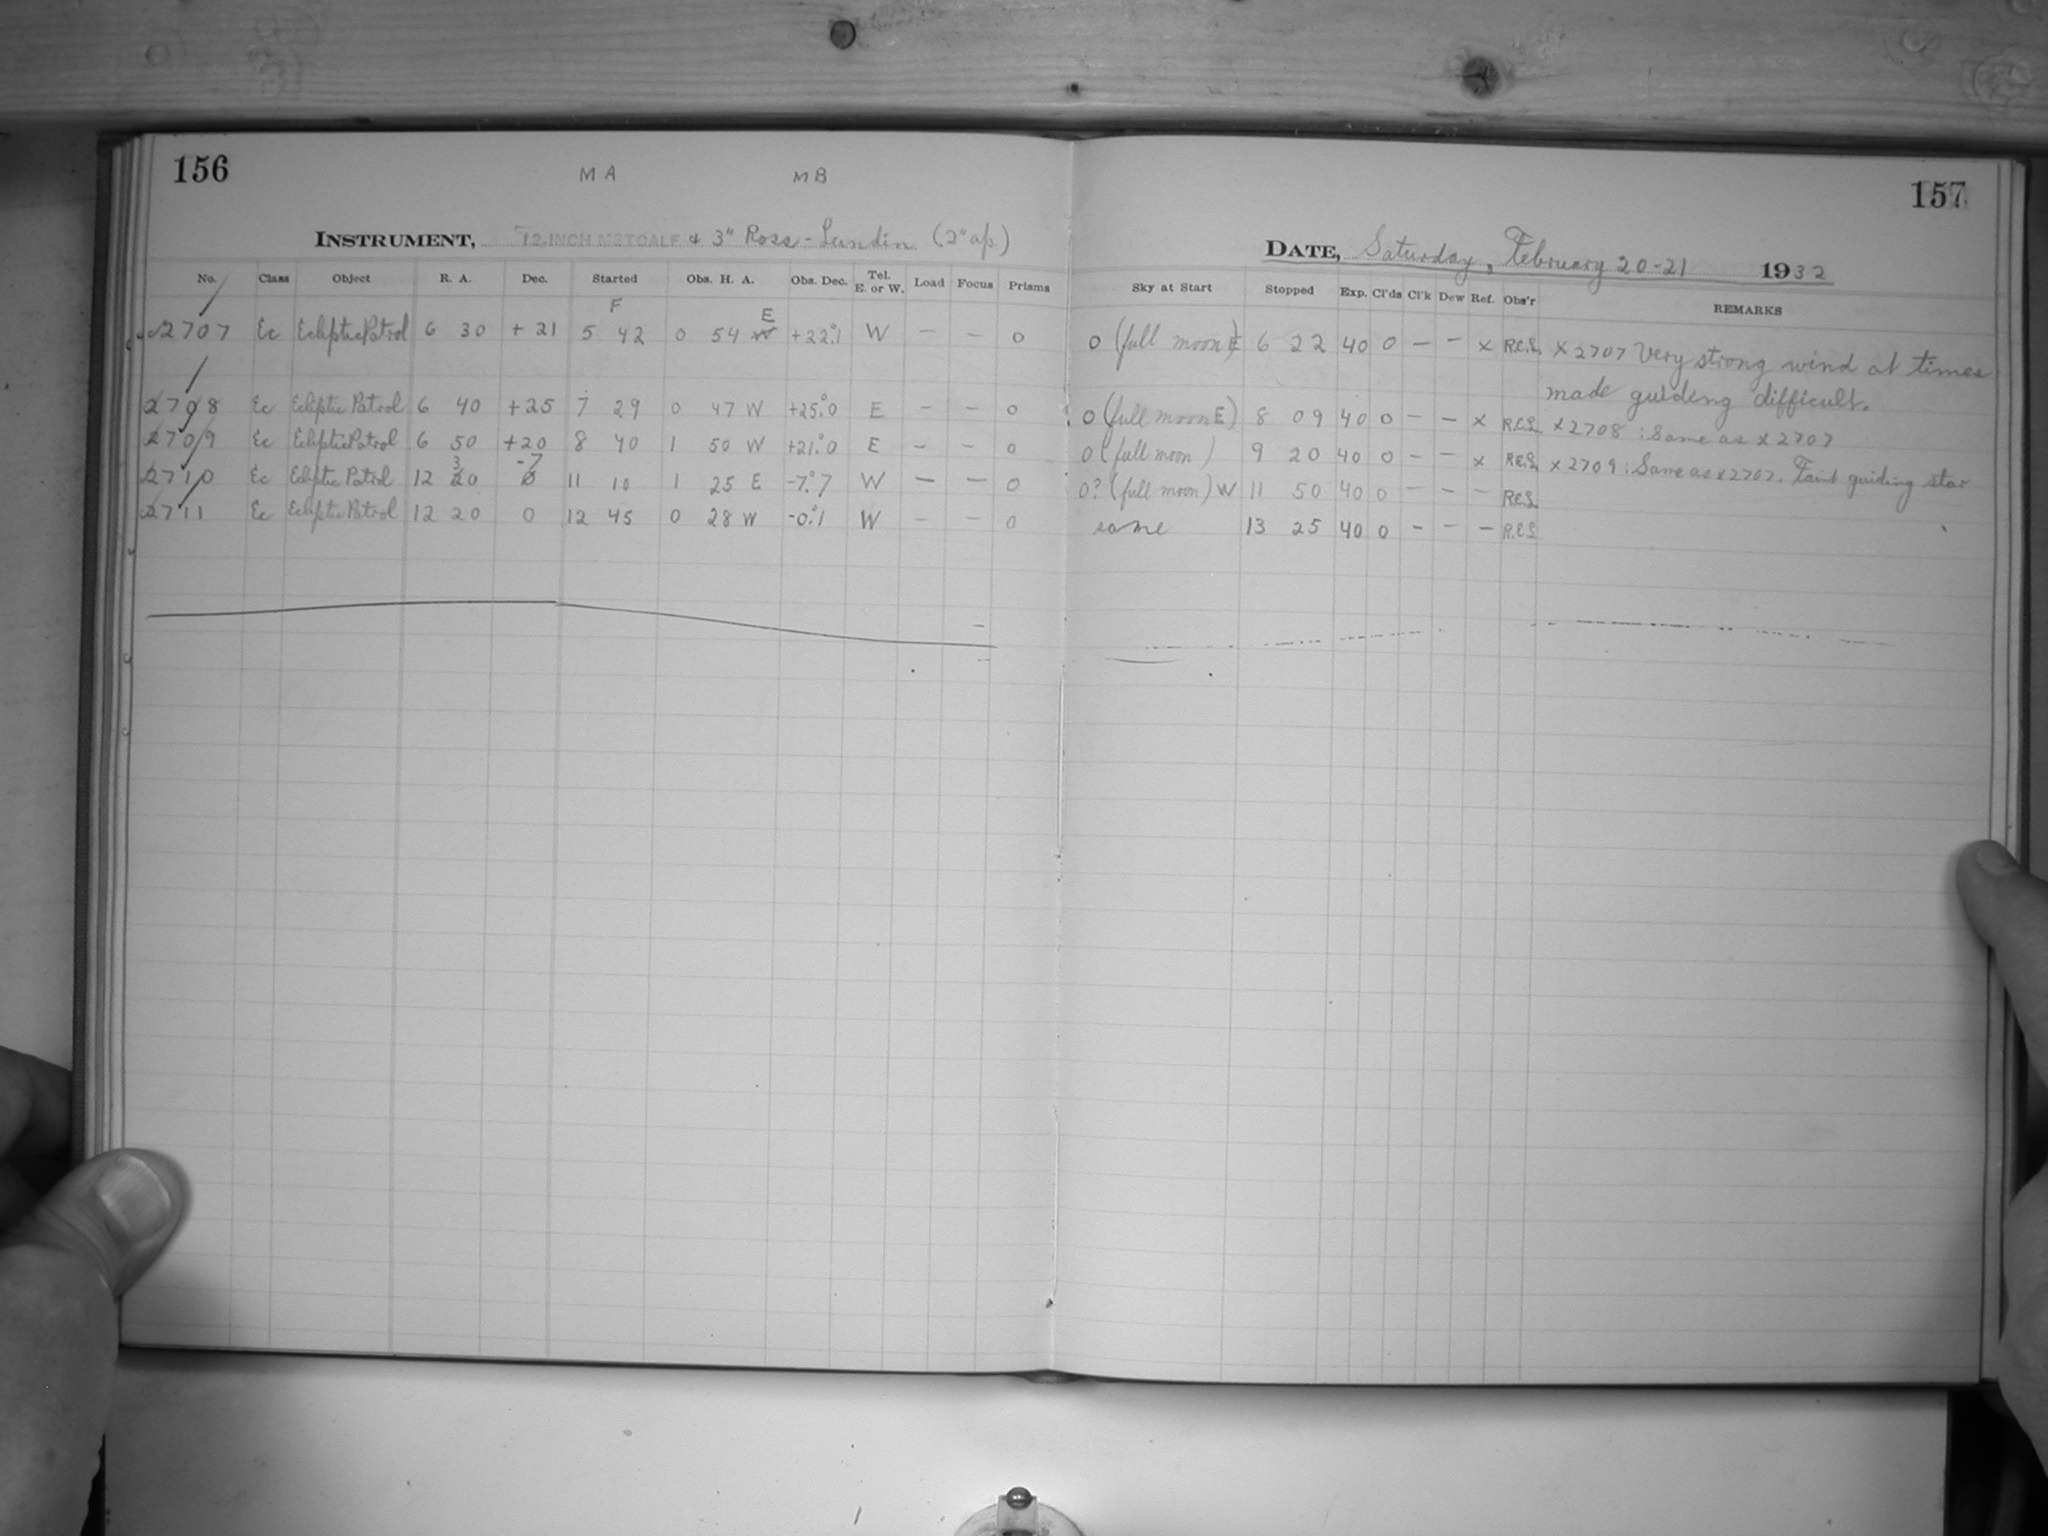 156
MA MB
INSTRUMENT, 12-INCH METCALF & 3" Ross-Lundin (2" ap.)
No. Class Object R. A. Dec. Started Obs. H. A. Obs. Dec. Tel. E. or W. Load Focus Prisms
F E
2707 Ec Ecliptic Patrol 6 30 +21 5 42 0 54 W +22°.1 W — — 0
2708 Ec Ecliptic Patrol 6 40 +25 7 29 0 47 W +25°.0 E — — 0
2709 Ec Ecliptic Patrol 6 50 +20 8 40 1 50 W +21°.0 E — — 0
3 -7
2710 Ec Ecliptic Patrol 12 20 0 11 10 1 25 E -7°.7 W — — 0
2711 Ec Ecliptic Patrol 12 20 0 12 45 0 28 W -0°.1 W — — 0
157
DATE, Saturday, February 20-21 1932
Sky at Start Stopped Exp. Cl'ds Cl'k Dew Ref. Obs'r REMARKS
0 (full moon) E 6 22 40 0 — — x R.E.S. x 2707 Very strong wind at times
made guiding difficult.
0 (full moon E) 8 09 40 0 — — x R.E.S. x 2708 : Same as x 2707
0 (full moon) 9 20 40 0 — — x R.E.S. x 2709 : Same as x 2707. Faint guiding star
0? (full moon) W 11 50 40 0 — — — R.E.S.
same 13 25 40 0 — — — R.E.S.